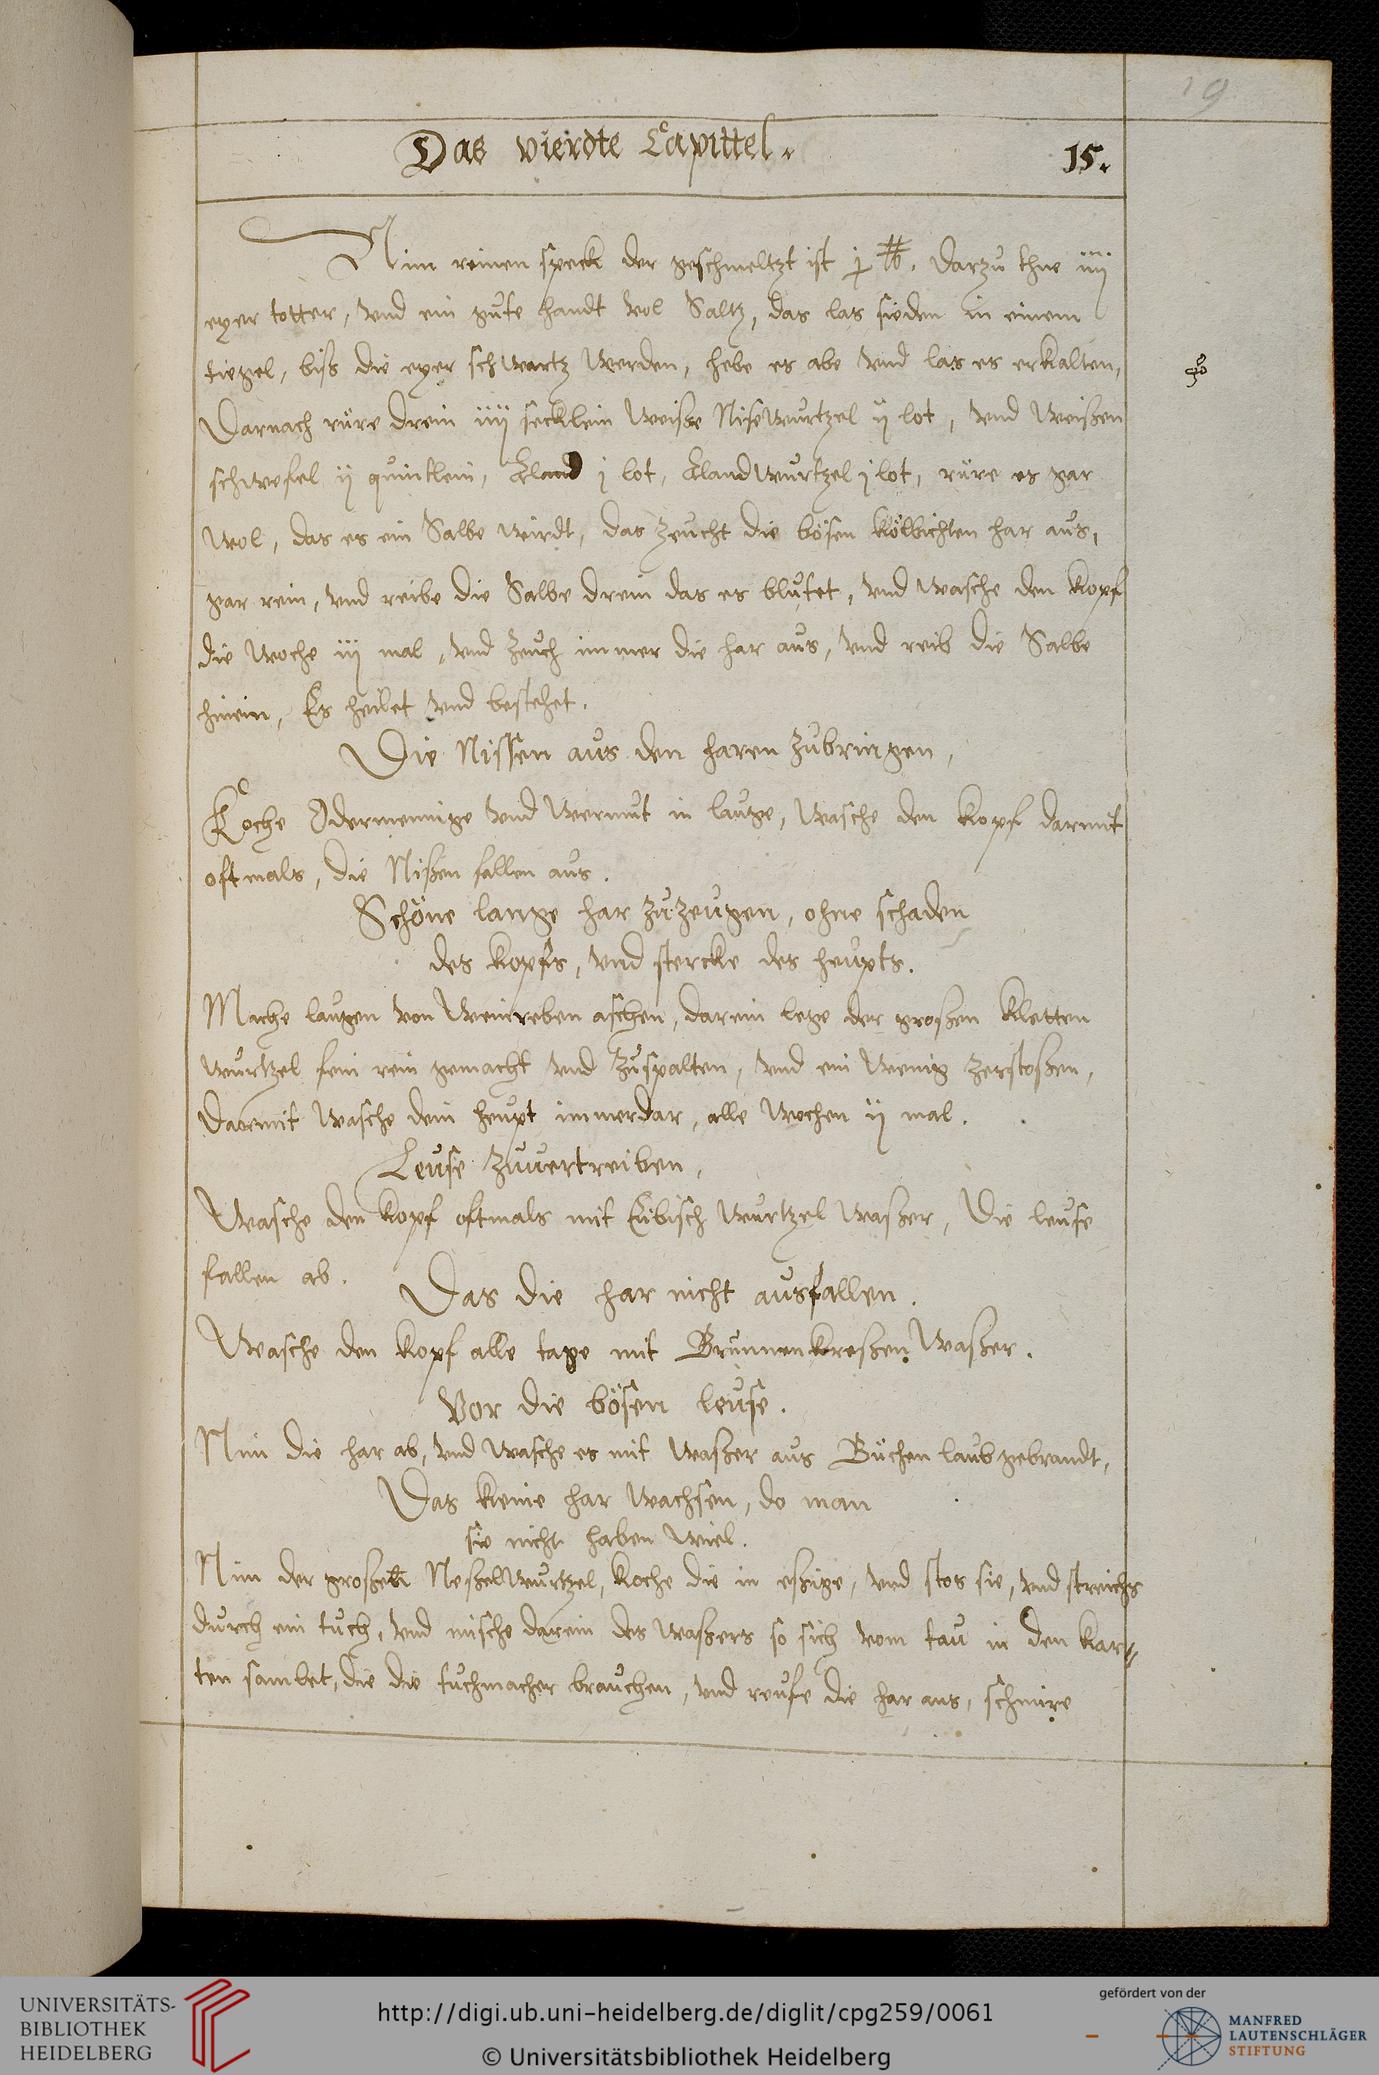 19
Das vierdte Capittel.
15.
Nim reinen speck der geschmeltzt ist j ℔. darzu thue iiij
eyer totter, vnd ein gute handt vol Saltz, das las sieden in einem
tiegel, biß die eyer schwartz werden, hebe es abe vnd las es erkalten,
Darnach rüre drein iiij secklein weisse Nisewurtzel ij lot, vnd weißen
schwefel ij quintlein, Eland j lot, Elandwurtzel j lot, rüre es gar
wol, das es ein Salbe wirdt, das zeucht die bösen kölbichten har aus,
gar rein, vnd reibe die Salbe drein das es blutet, vnd wasche den kopf
die woche iij mal, vnd zeuch immer die har aus, vnd reib die Salbe
hinein, Es heilet vnd bestehet.
Die Nissen aus den haren zubringen,
Koche Odermennige vnd wermut in lauge, wasche den kopf darmit
oftmals, die Nißen fallen aus.
Schöne lange har zuzeugen, ohne schaden
des kopfs, vnd stercke des heupts.
Mache laugen von weinreben aschen, darein lege der großen kletten
wurtzel fein rein gemacht vnd zuspalten, vnd ein wenig zerstoßen,
Darmit wasche dein heupt immerdar, alle wochen ij mal.
Leuse zuuertreiben,
Wasche den kopf oftmals mit Eibisch wurtzel waßer, Die leuse
fallen ab.
Das die har nicht ausfallen.
Wasche den kopf alle tage mit Brunnenkreßen waßer.
Vor die bösen leuse.
Nim die har ab, vnd wasche es mit waßer aus Büchen laub gebrandt,
Das keine har wachsen, do man
sie nicht haben wiel.
Nim der großen Neßelwurtzel, koche die in eßige, vnd stos sie, vnd streichs
durch ein tuch, vnd mische darein des waßers so sich vom tau in den kar-
ten samlet, die die tuchmacher brauchen, vnd reufe die har aus, schmire
UNIVERSITÄTS-
BIBLIOTHEK
HEIDELBERG
http://digi.ub.uni-heidelberg.de/diglit/cpg259/0061
© Universitätsbibliothek Heidelberg
gefördert von der
MANFRED
LAUTENSCHLÄGER
STIFTUNG